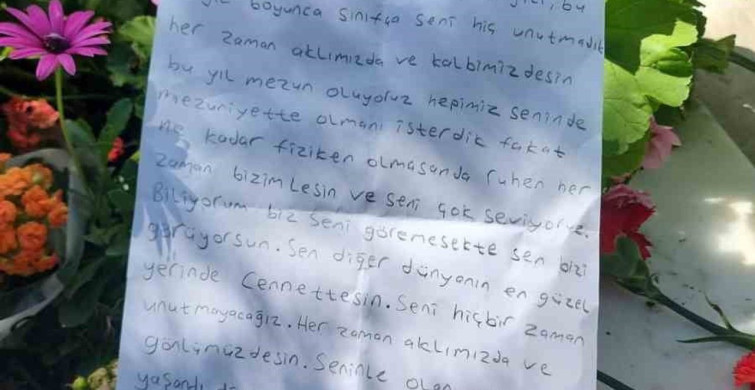 boyunca sınıfça seni hiç unutmadık
her zaman aklımızda ve kalbimizdesin
bu yıl mezun oluyoruz hepimiz seninde
mezuniyette olmanı isterdik fakat
ne kadar fiziken olmasanda ruhen her
zaman bizimlesin ve seni çok seviyoruz.
Biliyorum biz seni göremesekte sen bizi
görüyorsun. Sen diğer dünyanın en güzel
yerinde Cennettesin. Seni hiçbir zaman
unutmayacağız. Her zaman aklımızda ve
gönlümüzdesin. Seninle olan